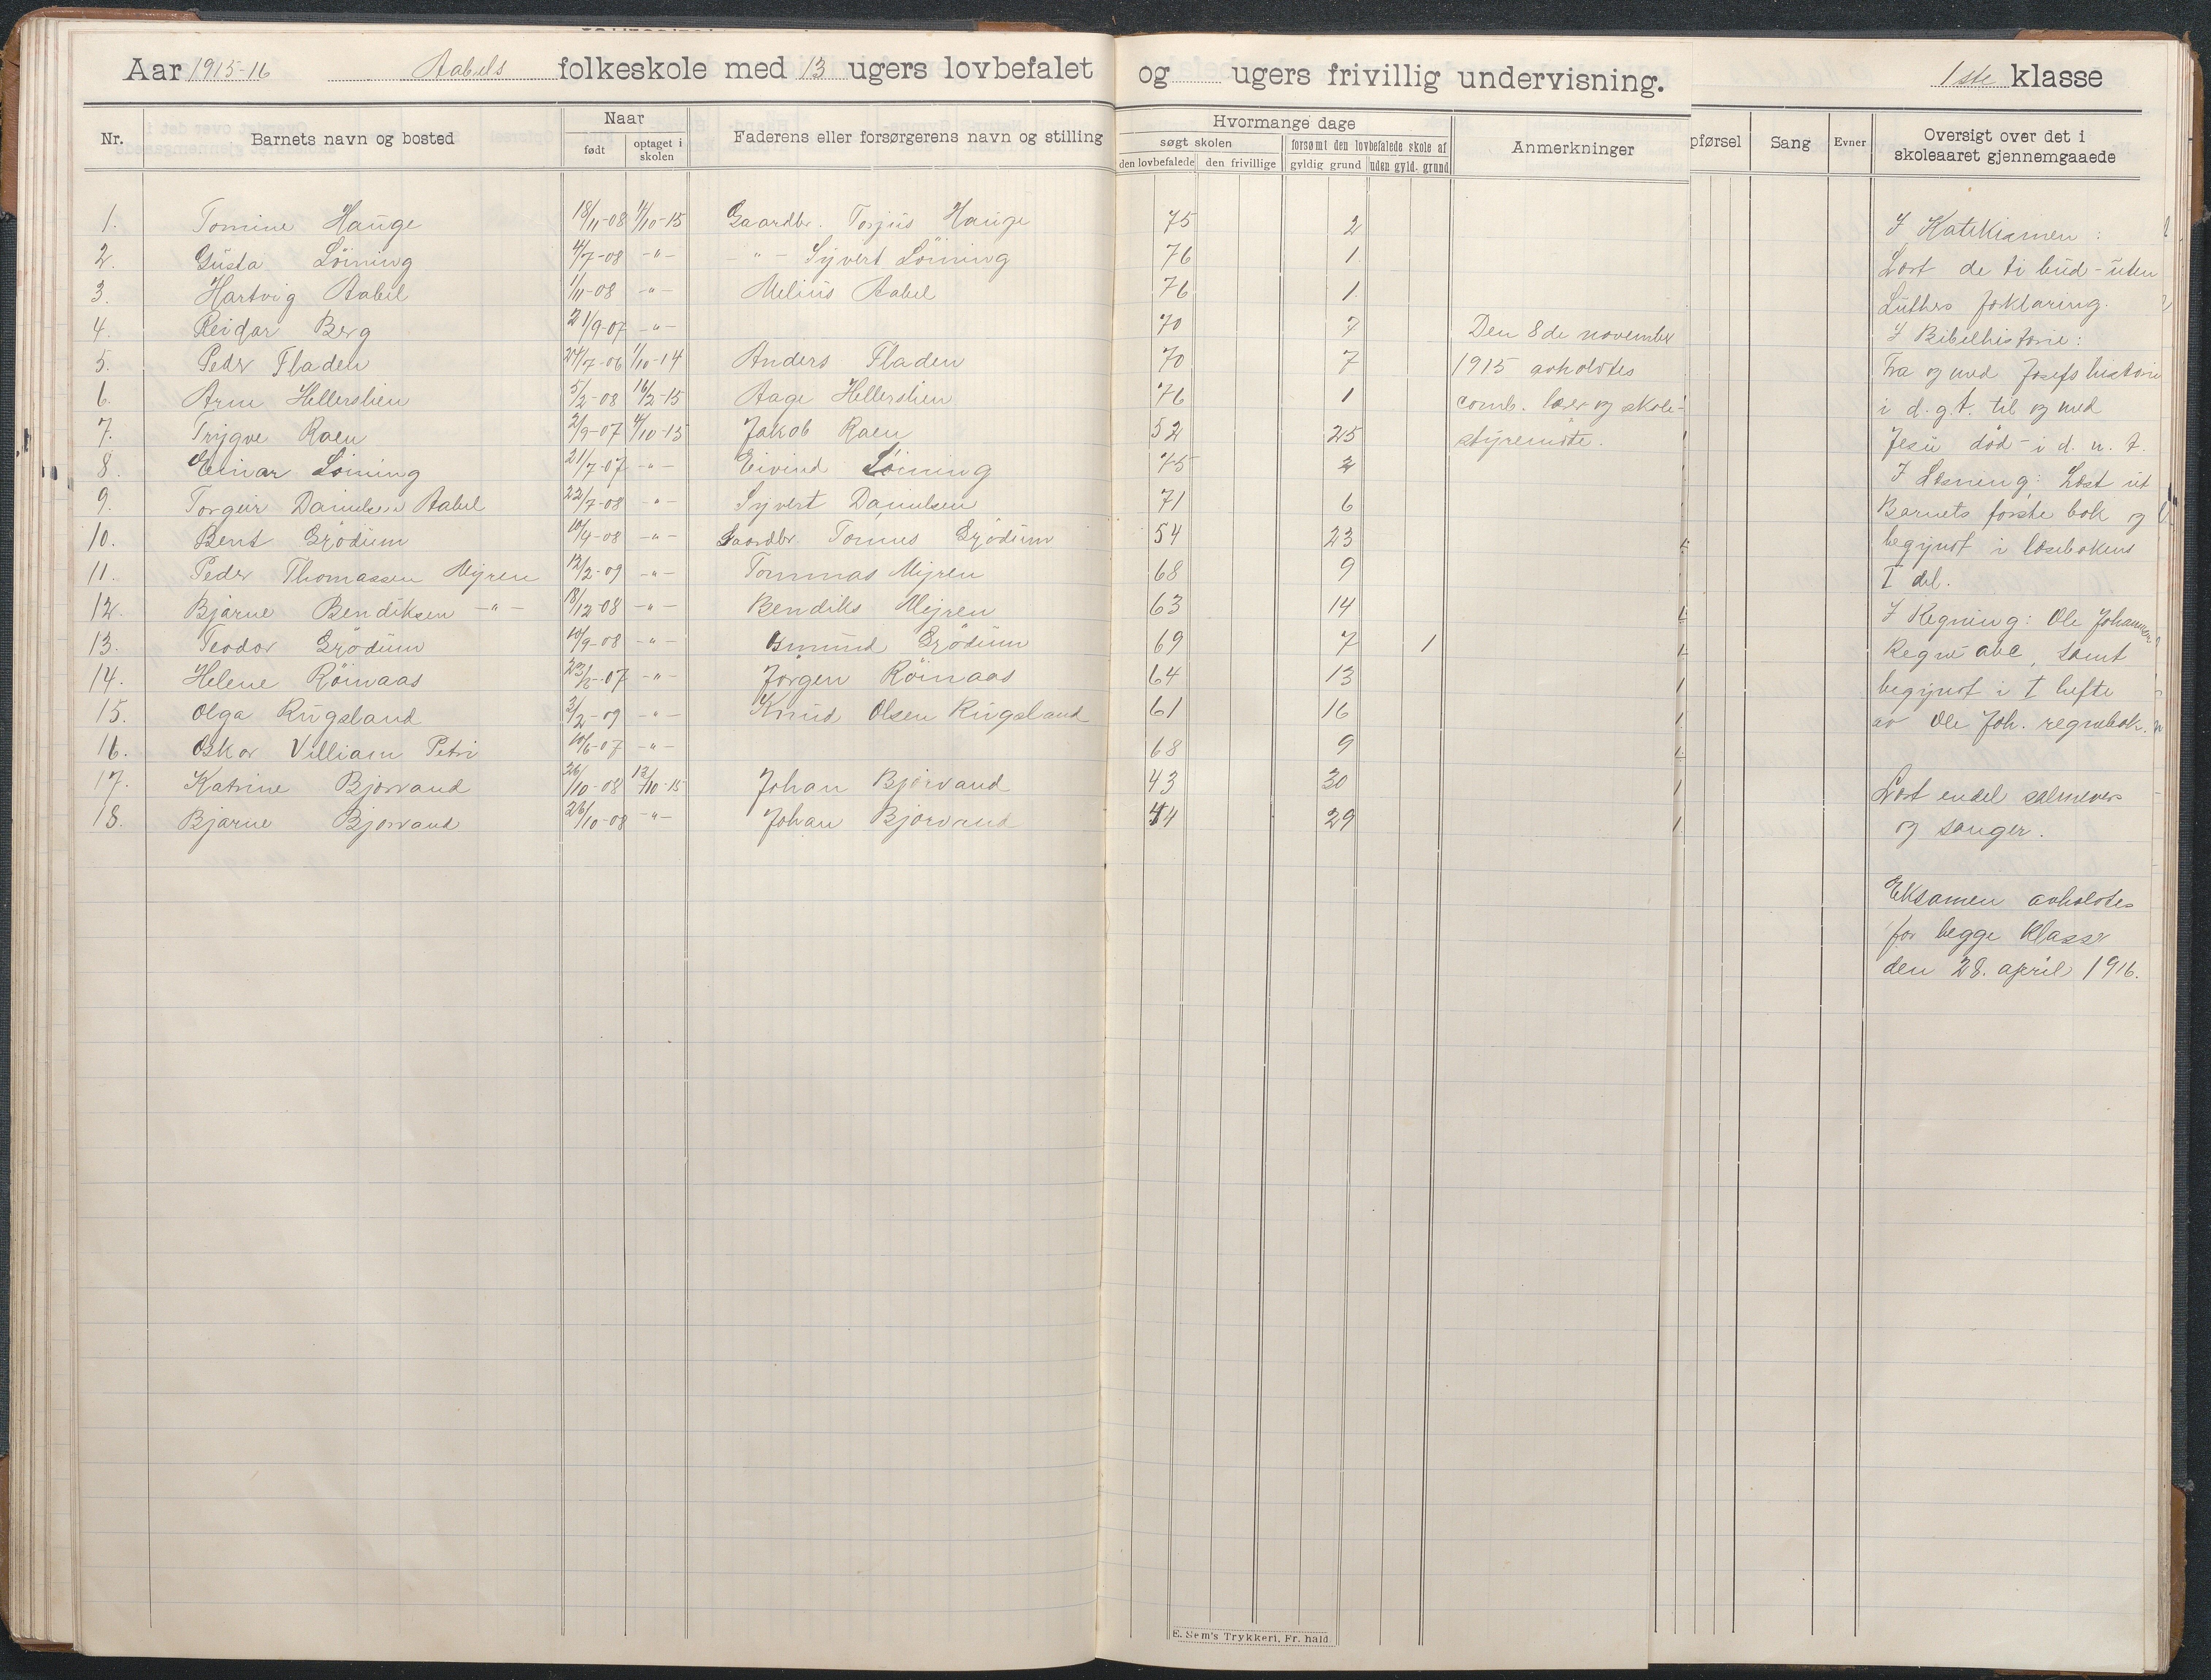 Aar 1915-16 Aabels folkeskole med 13 ugers lovbefalet og ugers frivillig undervisning. 1ste klasse
Nr. Barnets navn og bosted Naar født optaget i skolen Faderens eller forsørgerens navn og stilling
Hvormange dage søgt skolen den lovbefalede den frivillige forsømt den lovbefalede skole af gyldig grund uden gyld. grund Anmerkninger
pførsel Sang Evner Oversigt over det i skoleaaret gjennemgaaede
1. Tomine Hauge 18/11-08 11/10-15 Gaardbr. Torjus Hauge 75 2
2. Gusta Löining 4/7-08 -"- -"- Syvert Löining 76 1
3. Hartvig Aabel 1/11-08 -"- Melius Aabel 76 1
4. Reidar Berg 21/9-07 -"- 70 7
5. Peder Fladen 24/7-06 1/10-14 Anders Fladen 70 7
6. Arne Hellerslien 5/2-08 16/2-15 Aage Hellerslien 76 1
7. Trygve Raen 2/9-07 11/10-15 Jakob Raen 52 25
8. Einar Löining 21/7-07 -"- Eivind Löining 75 2
9. Torgeir Danielsen Aabel 22/7-08 -"- Syvert Danielsen 71 6
10. Bent Grödum 10/4-08 -"- Gaardbr. Tomus Grödum 54 23
11. Peder Thomassen Myren 12/2-09 -"- Tommas Myren 68 9
12. Bjarne Bendiksen -"- 18/12-08 -"- Bendiks Myren 63 14
13. Teodor Grödum 10/9-08 -"- Osmund Grödum 69 7 1
14. Helene Röinaas -07 -"- Jörgen Röinaas 64 13
15. Olga Rugsland 3/2-09 -"- Knud Olsen Rugsland 61 16
16. Oskar Villiam Petri 10/6-07 -"- 68 9
17. Katrine Bjorvand 26/10-08 13/10-15 Johan Bjorvand 43 30
18. Bjarne Bjorvand 26/10-08 -"- Johan Bjorvand 44 29
Den 8de november
1915 avholdtes
comb. lærer og skole-
styremöte.
I Katekismen:
Læst de ti bud - uten
Luthers forklaring.
I Bibelhistorie:
Fra og med Josefs historie
i d. g. t. til og med
Jesu död - i d. n. t.
I Læsning: Læst ut
Barnets förste bok og
begynt i læsebokens
I del.
I Regning: Ole Johannesen
Regne abc, samt
begynt i I hefte
av Ole Joh. regnebok.
Læst endel salmevers
og sanger.
Eksamen avholdtes
for begge Klasser
den 28. april 1916.
E. Sem's Trykkeri, Fr. hald